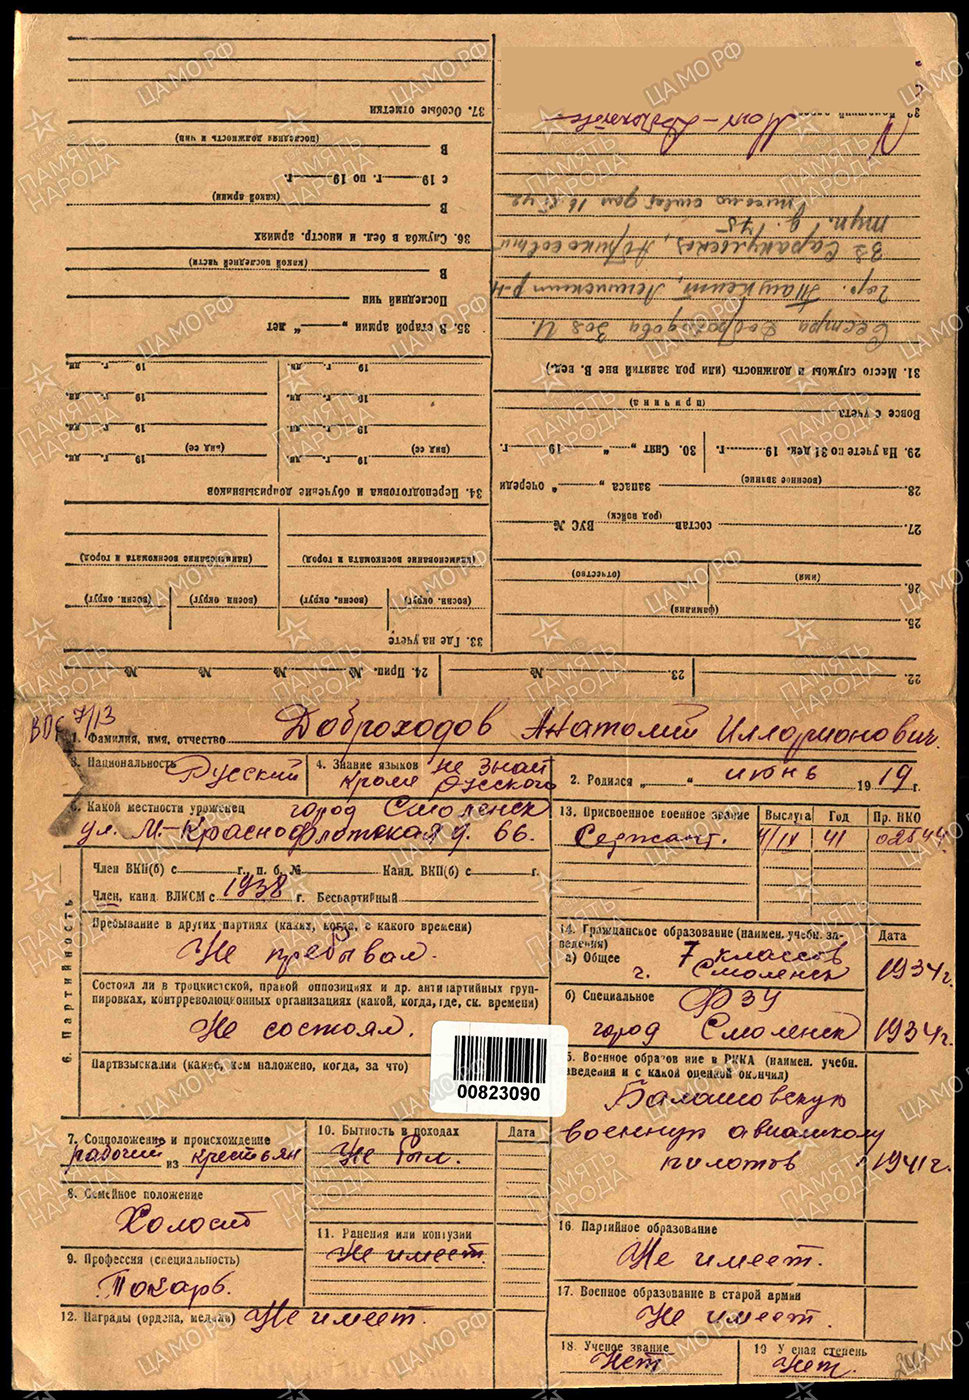 ВПГ 7/13
1. Фамилия, имя, отчество Доброходов Анатолий Илларионович.
3. Национальность Русский
4. Знание языков не знает
кроме русского
2. Родился „ “ июнь 1919 г.
5. Какой местности уроженец город Смоленск
ул. М-Краснофлотская д. 66.
13. Присвоенное военное звание Выслуга Год Пр. НКО
Сержант. 41 02544
6. Партийность
Член ВКП(б) с г., п. б. № Канд. ВКП(б) с г.
Член, канд. ВЛКСМ с 1938 г. Беспартийный
Пребывание в других партиях (каких, когда, с какого времени)
Не пребывал.
Состоял ли в троцкистской, правой оппозициях и др. антипартийных груп-
пировках, контрреволюционных организациях (какой, когда, где, ск. времени)
Не состоял.
Партвзыскания (какие, кем наложено, когда, за что)
00823090
14. Гражданское образование (наимен. учебн. за-
ведения) Дата
а) Общее 7 классов
г. Смоленск 1934 г.
б) Специальное ФЗУ
город Смоленск 1934 г.
15. Военное образование в РККА (наимен. учебн.
заведения и с какой оценкой окончил)
Балашовскую
военную авиашколу
пилотов 1941 г.
7. Соцположение и происхождение
рабочий из крестьян
8. Семейное положение
Холост
9. Профессия (специальность)
Токарь.
10. Бытность в походах Дата
Не был.
11. Ранения или контузии
Не имеет.
12. Награды (ордена, медали) Не имеет.
16. Партийное образование
Не имеет.
17. Военное образование в старой армии
Не имеет.
18. Ученое звание
Нет
19 Ученая степень
Нет.
22.
23. №
24. Прип. № № № №
25.
(фамилия)
26.
(имя) (отчество)
27. состав ВУС №
(род войск)
28. запаса „ “ очереди
(военное звание)
29. На учете по 31 дек. 19 г. 30. Снят „ “ 19 г.
Вовсе с учета
(причина)
31. Место службы и должность (или род занятий вне В. вед.)
Сестра Доброходова Зоя И.
гор. Ташкент, Ленинский р-н
Абрикосовый
туп. д. 75
33. Где на учете
(воен. округ) (воен. округ) (воен. округ) (воен. округ)
(наименование военкомата и город) (наименование военкомата и город)
34. Переподготовка и обучение допризывников
19 г. дн. 19 г. дн.
(вид ее) (вид ее)
19 г. дн. 19 г. дн.
19 г. дн. 19 г. дн.
19 г. дн. 19 г. дн.
35. В старой армии „ “ лет
Последний чин
В
(какой последней части)
36. Служба в бел. и иностр. армиях
В
(какой армии)
с 19 г. по 19 г.
В
(последняя должность и чин)
37. Особые отметки
ЦАМО РФ
ПАМЯТЬ НАРОДА